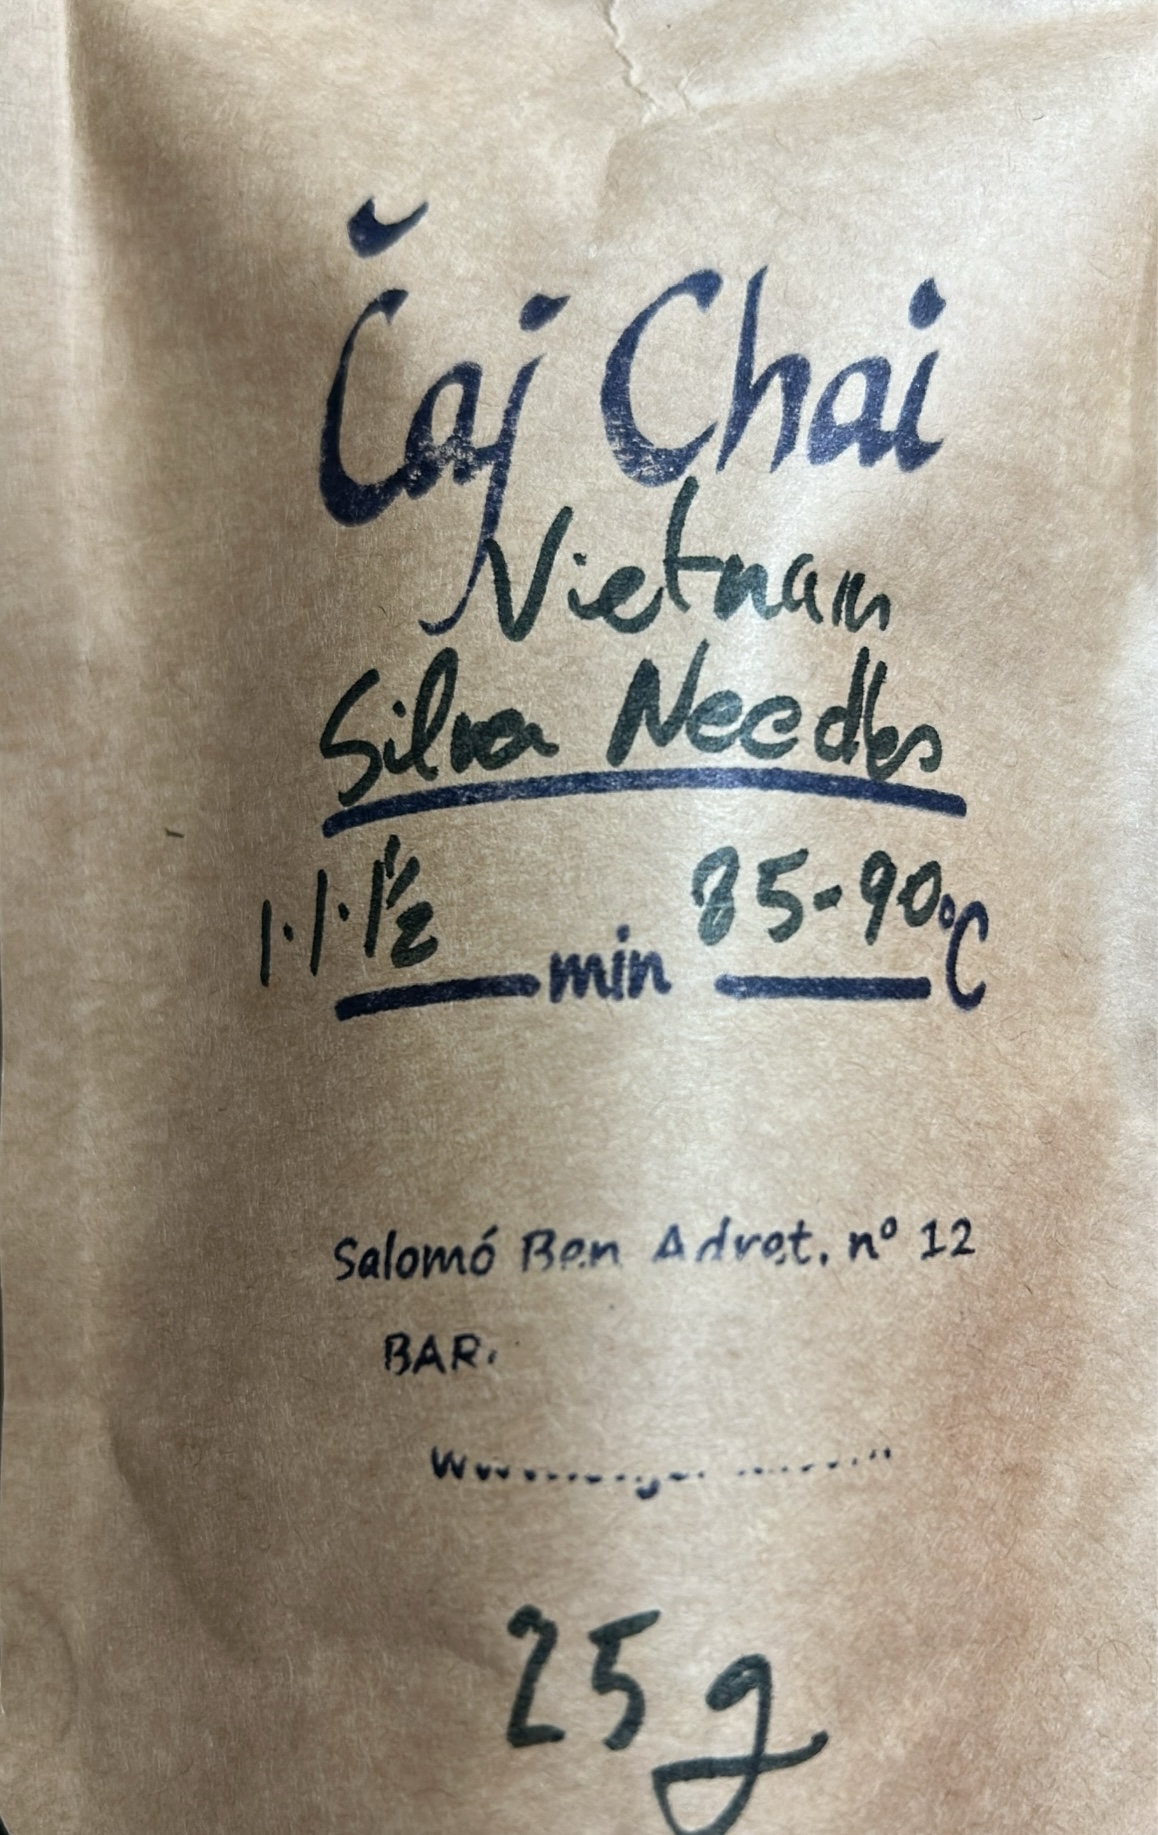 Čaj Chai
Vietnam
Silver Needles
1·1·1½ min 85-90°C
Salomó Ben Adret, nº 12
BAR
25g